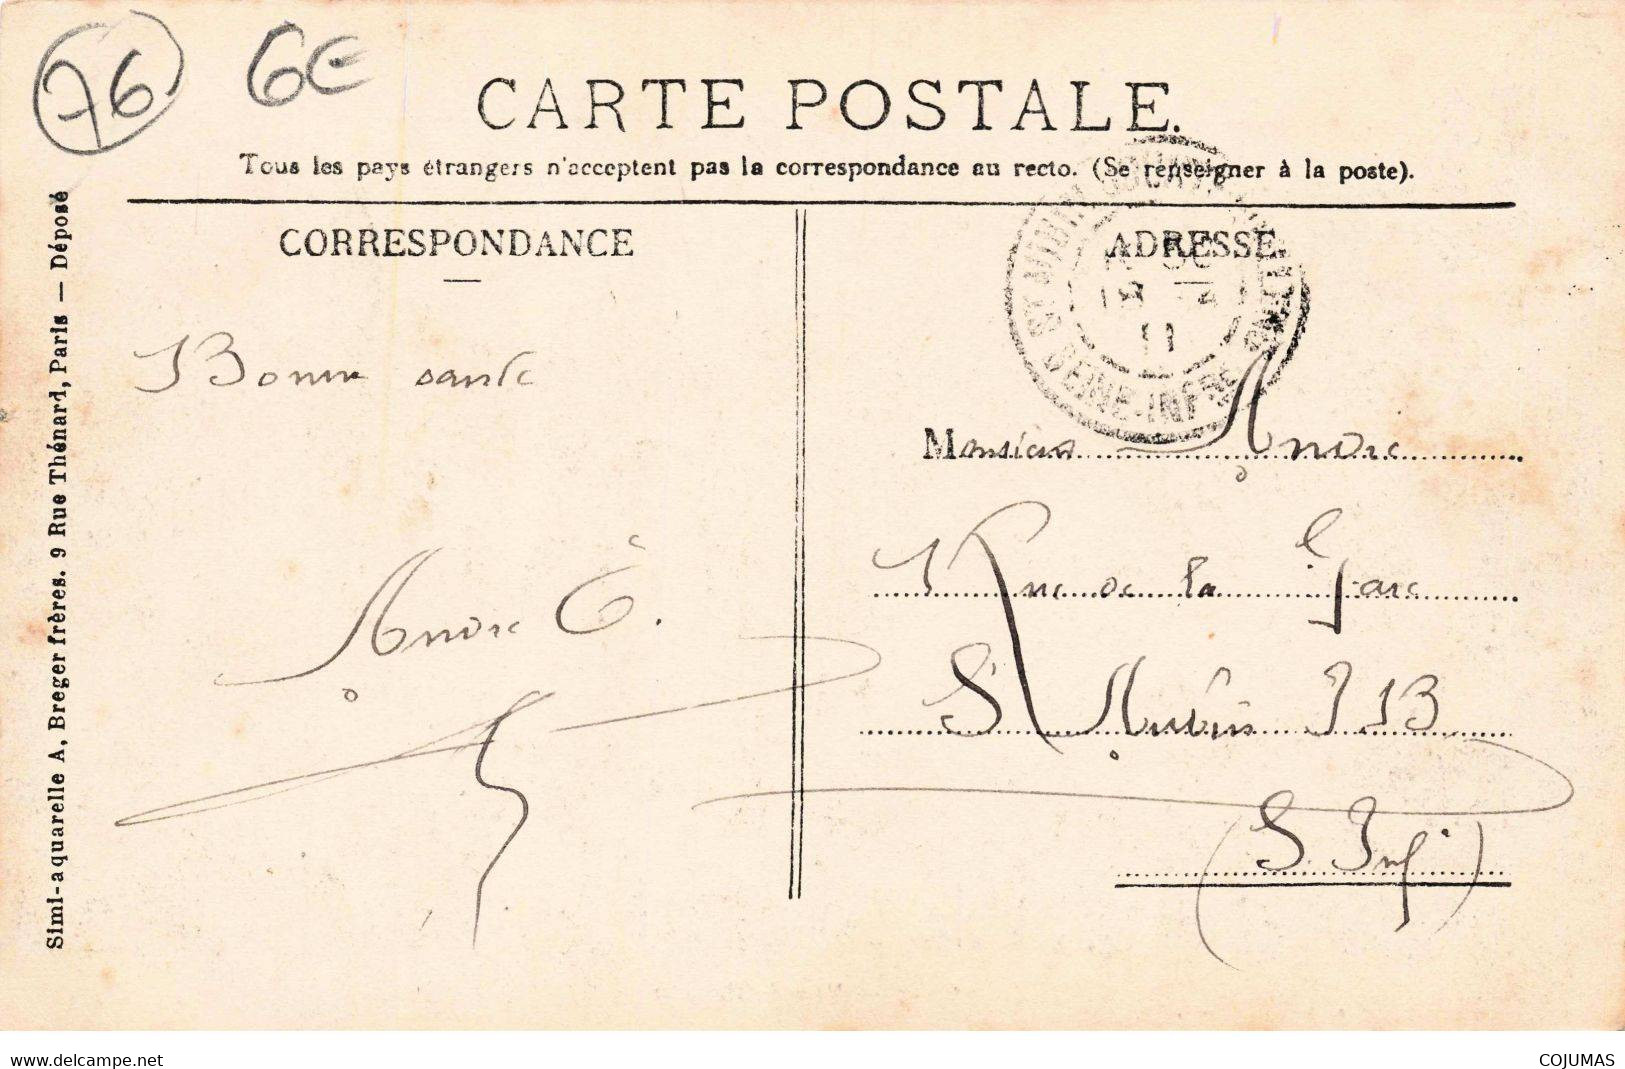 76 6€
CARTE POSTALE.
Tous les pays étrangers n'acceptent pas la correspondance au recto. (Se renseigner à la poste).
CORRESPONDANCE
ADRESSE
Bonne santé
André C.
Monsieur André
Rue de la Gare
St Aubin J B
(S. Inf)
ST AUBIN
SEINE-INFRE
11
Simi-aquarelle A, Breger frères. 9 Rue Thénard, Paris — Déposé
www.delcampe.net
COJUMAS